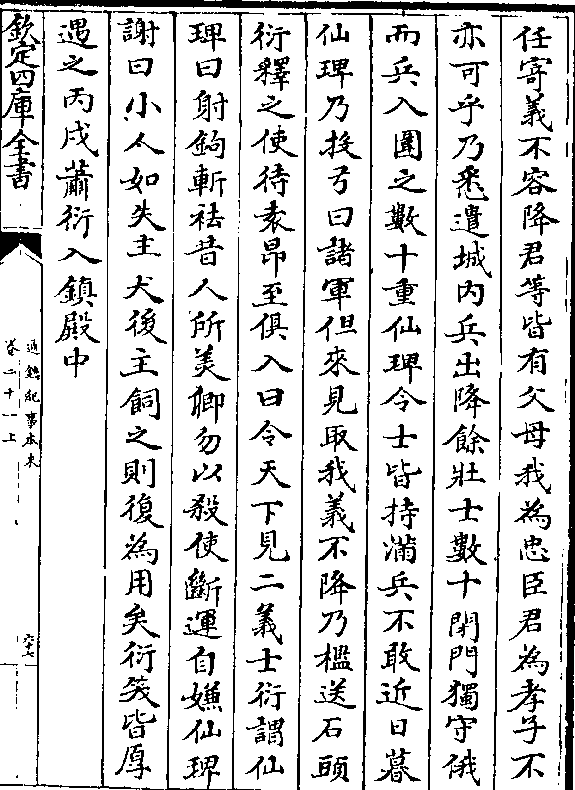 任寄義不容降君等皆有父母我為忠臣君為孝子不
亦可乎乃悉遣城內兵出降餘壯士數十閉門獨守俄
而兵入圍之數十重仙琕令士皆持滿兵不敢近日暮
仙琕乃投弓曰諸軍但來見取我義不降乃檻送石頭
衍釋之使待袁昂至俱入曰令天下見二義士衍謂仙
琕曰射鉤斬袪昔人所美卿勿以殺使斷運自嫌仙琕
謝曰小人如失主犬後主飼之則復為用矣衍笑皆厚
遇之丙戌蕭衍入鎮殿中
欽定四庫全書
通鑑紀事本末
卷二十一上
六十七